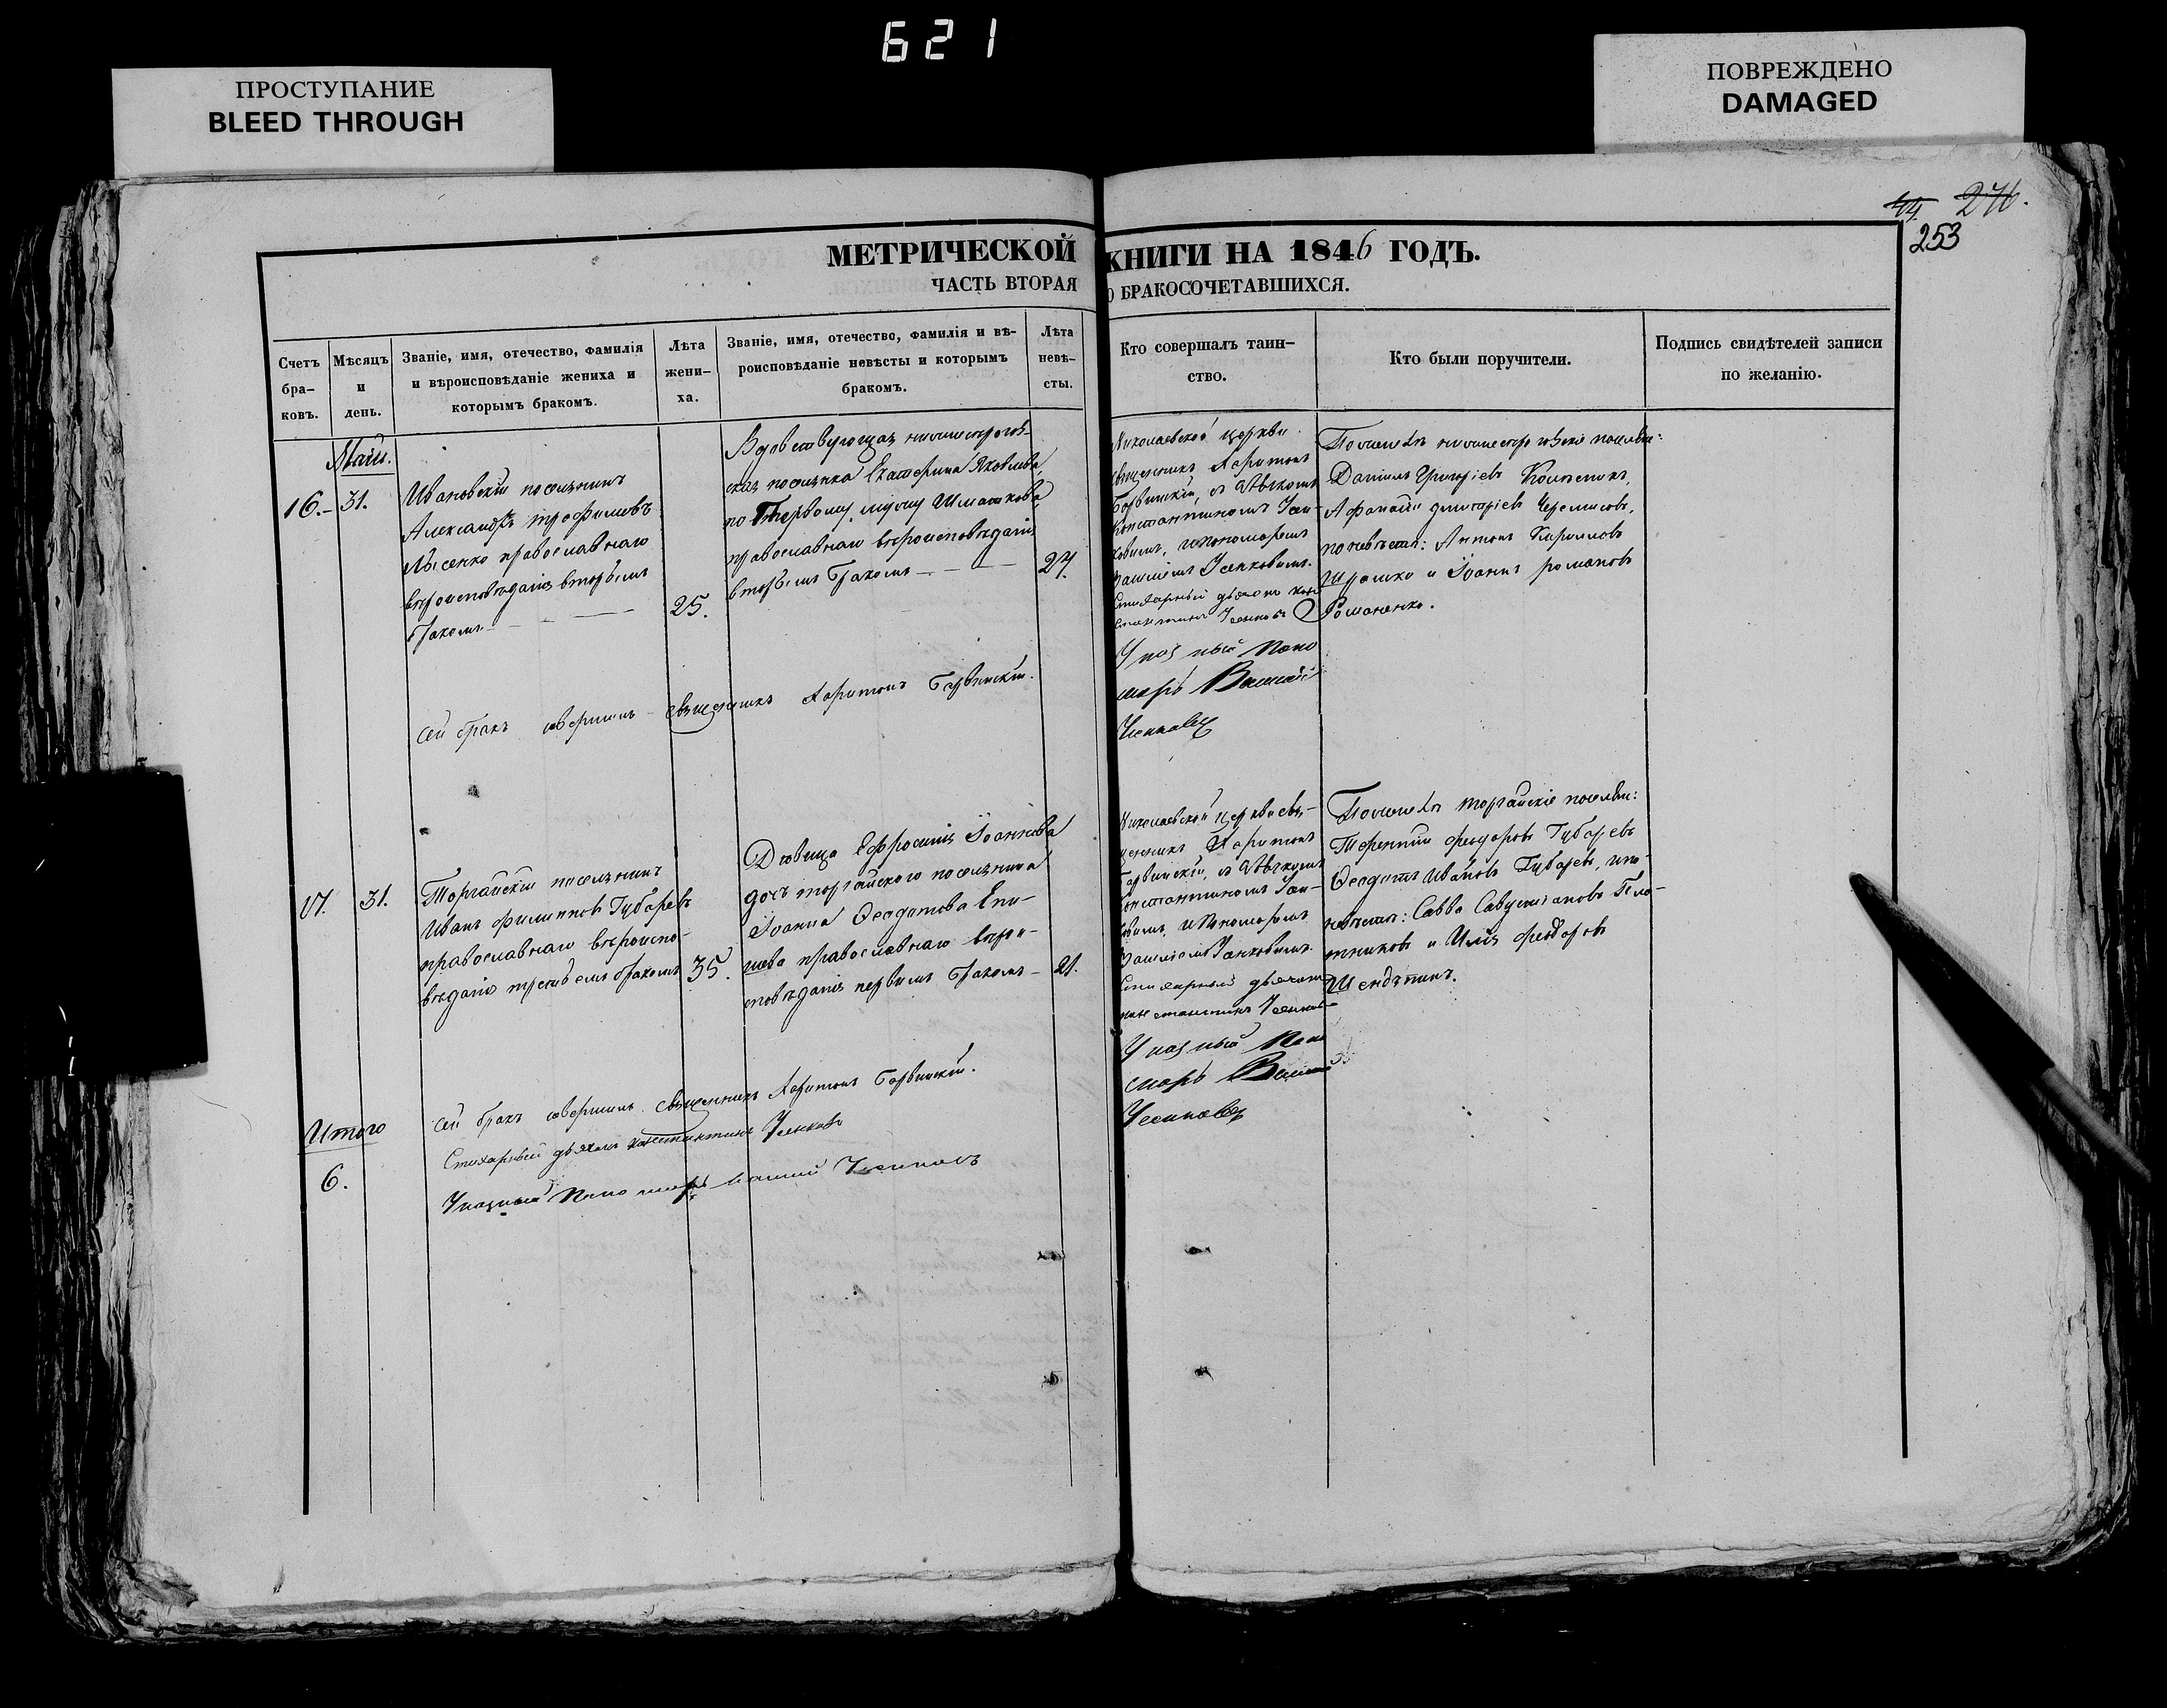 621
ПРОСТУПАНИЕ
BLEED THROUGH
ПОВРЕЖДЕНО
DAMAGED
44 276.
253
МЕТРИЧЕСКОЙ КНИГИ НА 1846 ГОДЪ.
ЧАСТЬ ВТОРАЯ О БРАКОСОЧЕТАВШИХСЯ.
Счетъ бра-
ковъ.
Мѣсяцъ
и
день.
Званіе, имя, отечество, фамилія
и вѣроисповѣданіе жениха и
которымъ бракомъ.
Лѣта
жени-
ха.
Званіе, имя, отечество, фамилія и вѣ-
роисповѣданіе невѣсты и которымъ
бракомъ.
Лѣта
невѣ-
сты.
Кто совершалъ таин-
ство.
Кто были поручители.
Подпись свидѣтелей записи
по желанію.
Маій.
16. 31.
Ивановскій поселянинъ
Александръ трофимовъ
Лысенко православнаго
вѣроисповѣданія вторымъ
бракомъ
25.
Вдовствующая
поселянка Екатерина Яковлева,
по Первому мужу Шматкова,
православнаго вѣроисповѣданія
вторымъ бракомъ
27.
Николаевской церкви
священникъ Харитонъ
съ дьячкомъ
Константиномъ
и пономаремъ
Стихарный дьячокъ Кон-
стантинъ
Указный Поно
марь Василій
По женихѣ поселяне:
Даніилъ Григоріевъ
Афанасій григоріевъ Черемисовъ,
по невѣстѣ: Антонъ Кириловъ
и Іоаннъ романовъ
Романенко.
Сей бракъ совершилъ священникъ Харитонъ
17. 31.
Торгайскій поселянинъ
Иванъ филиповъ Губаревъ
православнаго вѣроиспо-
вѣданія третьимъ бракомъ
35.
Дѣвица Ефросинія Іоаннова
дочь торгайского поселянина
Іоанна Ѳеодотова Епи-
шева православнаго вѣрои-
сповѣданія первымъ бракомъ
21.
Николаевской церкви свя-
щенникъ Харитонъ
съ дьячкомъ
Константиномъ
и пономаремъ
Стихарный дьячокъ
Константинъ
Указный Поно
марь Василій
По женихѣ торгайскіе поселяне:
Терентій федоровъ Губаревъ
Ѳеодотъ Ивановъ Губаревъ, по
невѣстѣ: Савва
и Илія федоровъ
Сей бракъ совершилъ священникъ Харитонъ
Стихарный дьячокъ Константинъ
Указный Пономарь Василій
Итого
6.